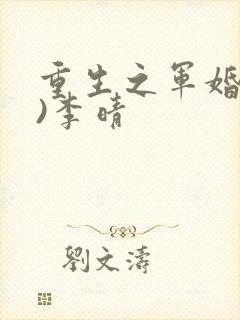 重生之军婚
)李晴
劉文濤